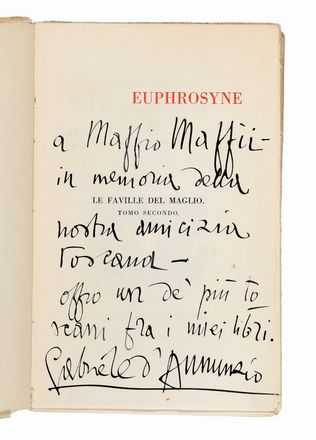 EUPHROSYNE
a Maffio Maffii -
in memoria della
LE FAVILLE DEL MAGLIO.
TOMO SECONDO.
nostra amicizia
toscana -
offro un de' più to
scani fra i miei libri.
Gabriele d'Annunzio